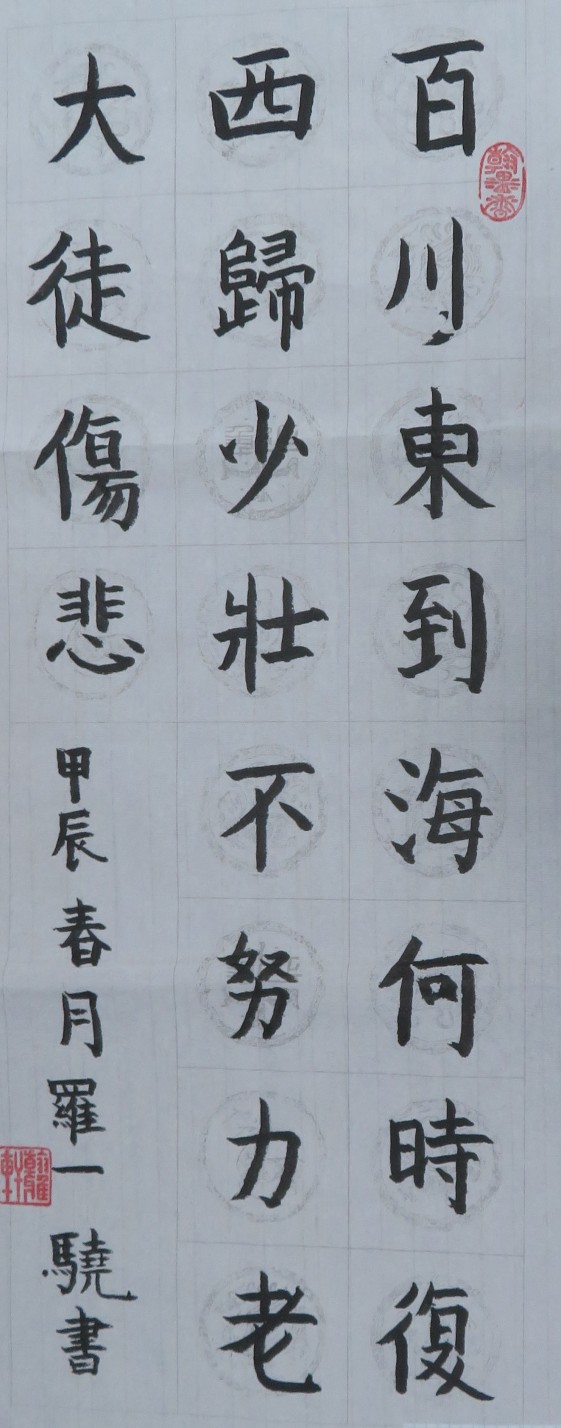 百川東到海何時復
西歸少壯不努力老
大徒傷悲
甲辰春月羅一驍書
翰墨香